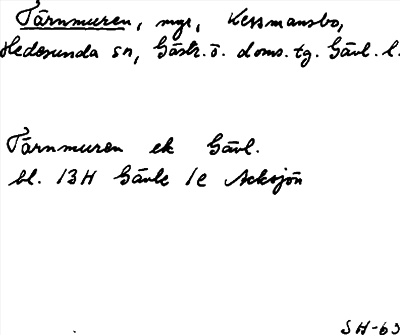 Tärnmuren, myr, Kessmansbo,
Hedesunda sn, Gästr. ö. doms. tg. Gävl. l.
Tärnmuren ek Gävl.
bl. 13H Gävle 1e Acksjön
SH-63